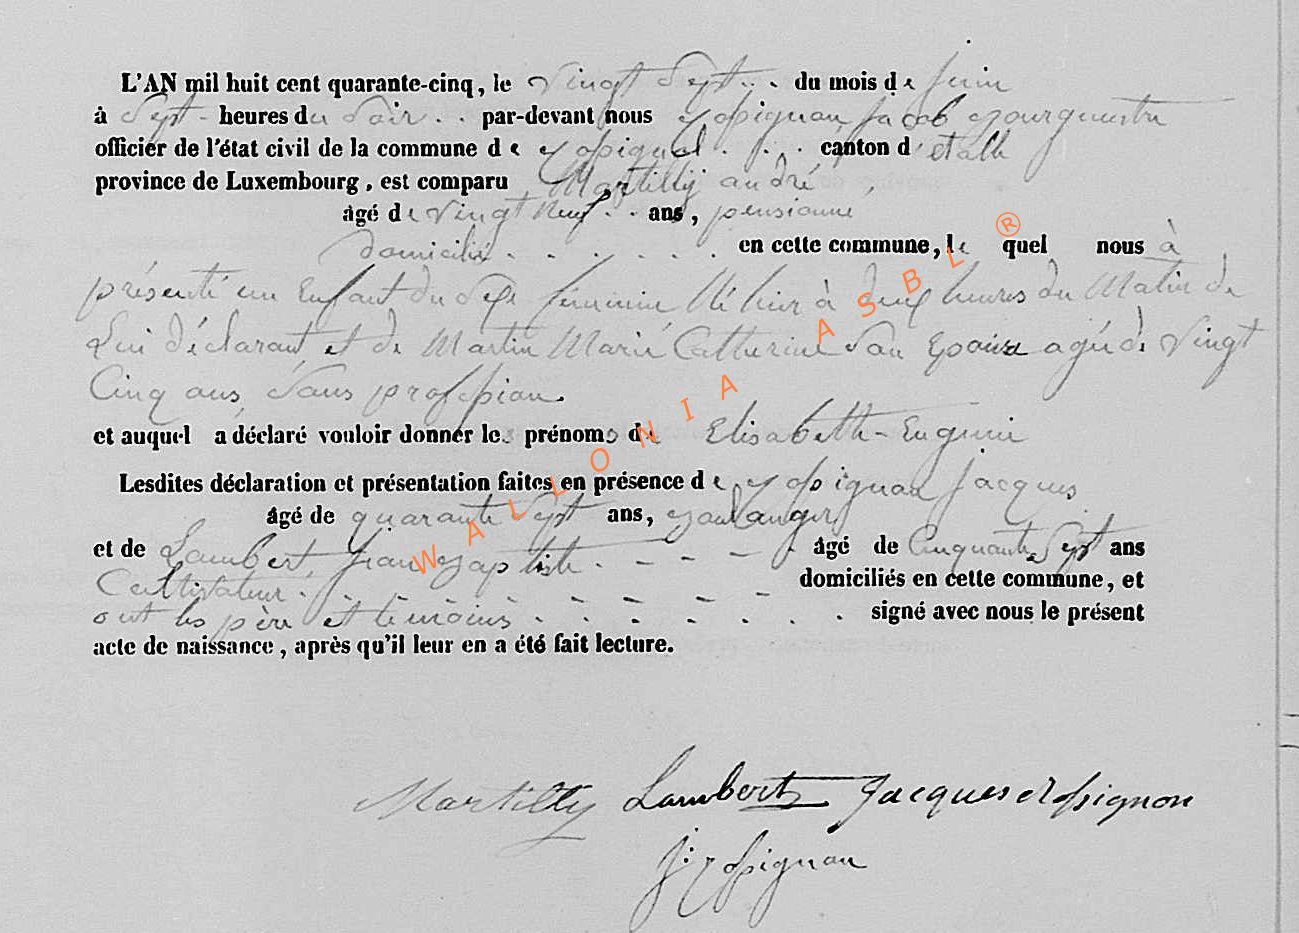 L'AN mil huit cent quarante-cinq, le vingt Sept du mois de juin
à Sept heures du Soir par-devant nous Rossignon Jacob Bourguestre
officier de l'état civil de la commune de Rossignol canton d'étalle
province de Luxembourg, est comparu Martilly andré
âgé de vingt Neuf ans, pensionné
domicilié en cette commune, lequel nous à
présenté un Enfant du Sexe féminin Né hier à deux heures du Matin de
Lui déclarant et de Martin Marie Catherine Son Epouse agée de Vingt
Cinq ans Sans profession.
et auquel a déclaré vouloir donner les prénoms de Elisabeth-Eugenie
Lesdites déclaration et présentation faites en présence de Rossignon Jacques
âgé de quarante Sept ans, Boulanger
et de Lambert Jean Baptiste âgé de Cinquante Sept ans
Cultivateur domiciliés en cette commune, et
ont les père et témoins signé avec nous le présent
acte de naissance, après qu'il leur en a été fait lecture.
Martilly Lambert Jacques Rossignon
J: Rossignon
WALLONIA ASBL ®